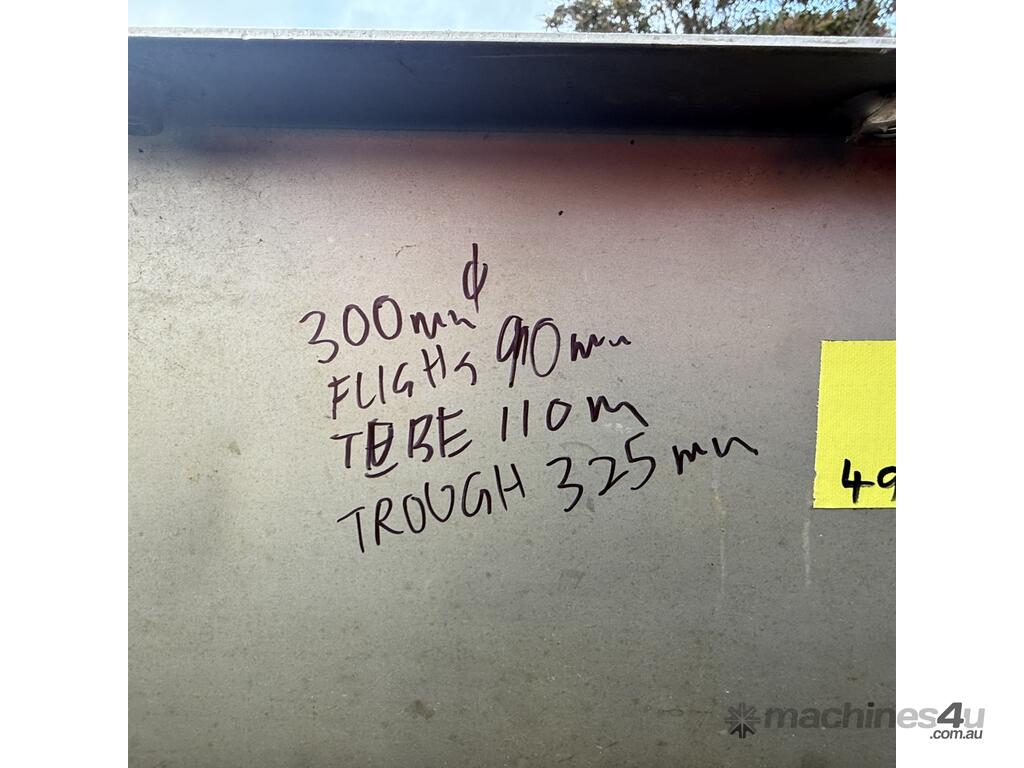 300mm ϕ
FLIGHS 90mm
TUBE 110m
TROUGH 325mm
49
machines4u
.com.au